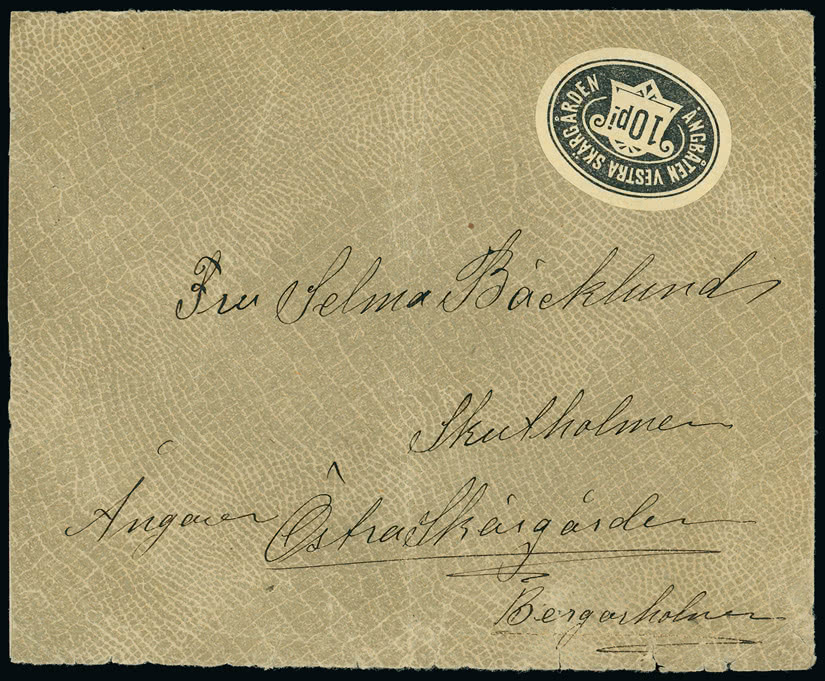 ÅNGBÅTEN VESTRA SKÄRGÅRDEN
10 pi
Fru Selma Bäcklund
Skutholmen
Ångaren Östra Skärgården